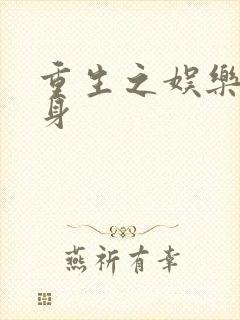 重生之娱樂
身
燕祈有幸